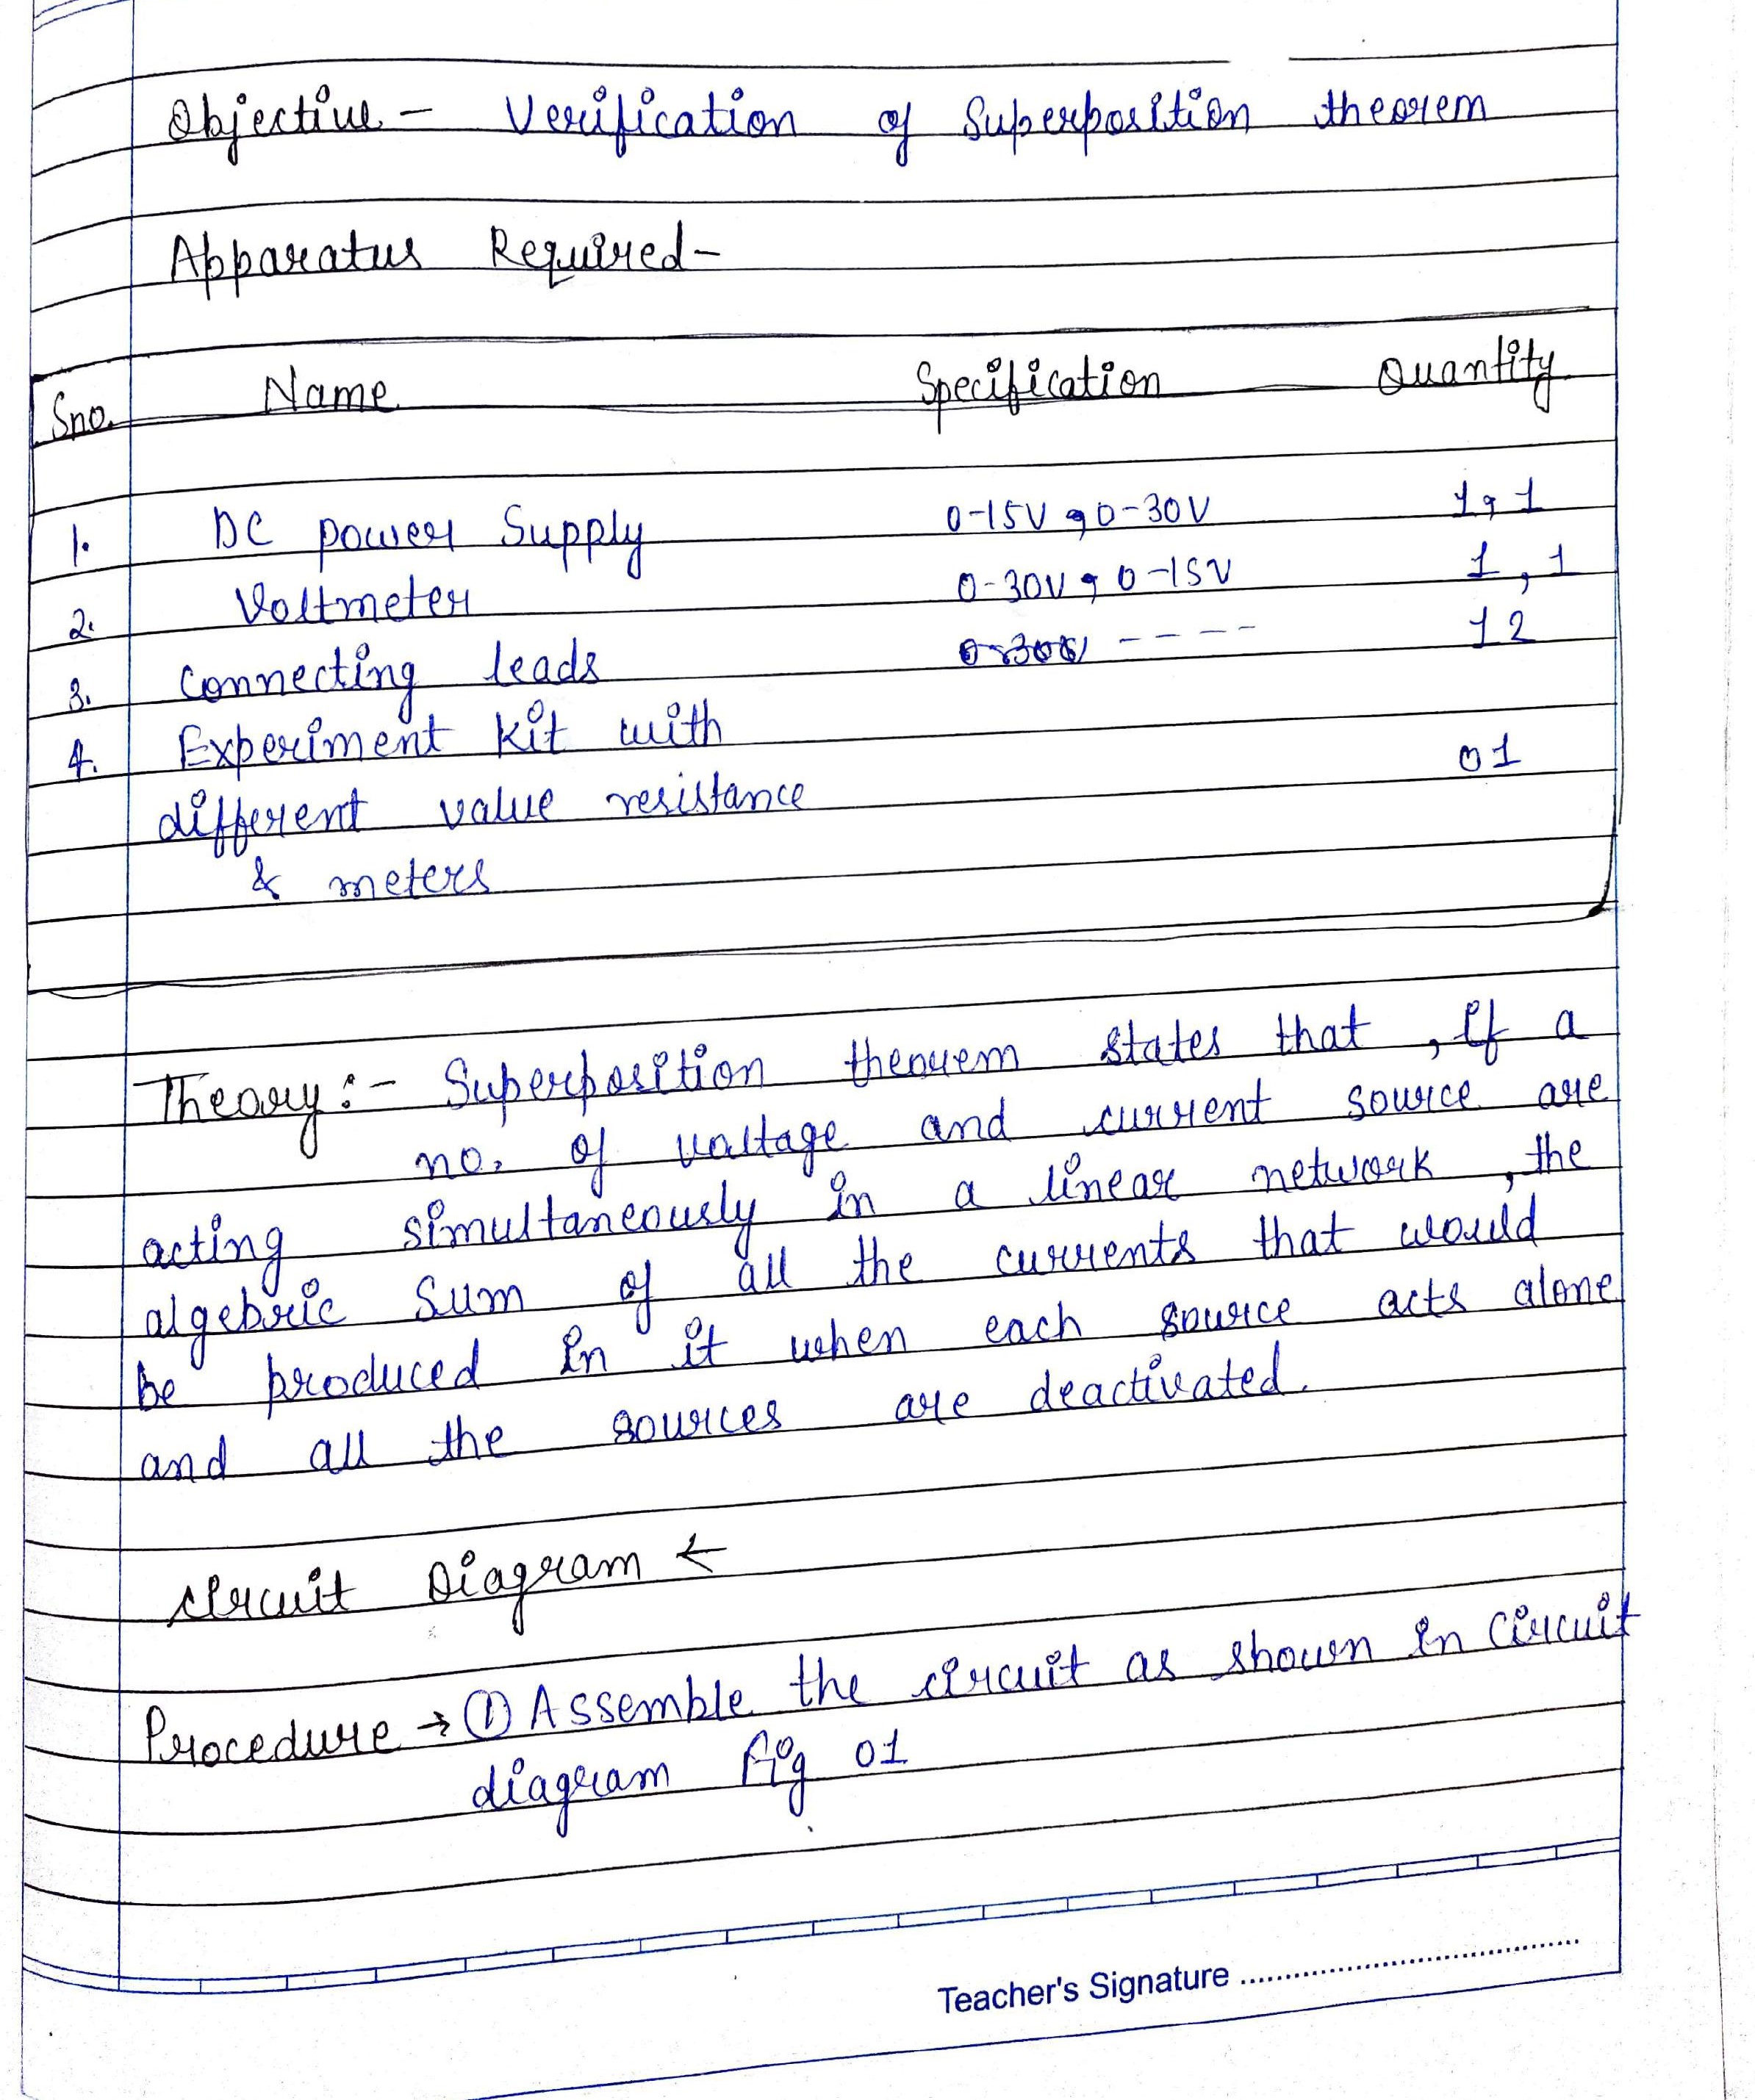 Objective - Verification of Superposition theorem
Apparatus Required-
Sno. Name Specification Quantity
1. DC power Supply 0-15V, 0-30V 1, 1
2. Voltmeter 0-30V, 0-15V 1, 1
3. Connecting leads ---- 12
4. Experiment Kit with
different value resistance 01
& meters
Theory:- Superposition theorem states that, if a
no. of voltage and current source are
acting simultaneously in a linear network, the
algebric sum of all the currents that would
be produced in it when each source acts alone
and all the sources are deactivated.
Circuit Diagram ←
Procedure → ① Assemble the circuit as shown in circuit
diagram fig 01
Teacher's Signature ........................